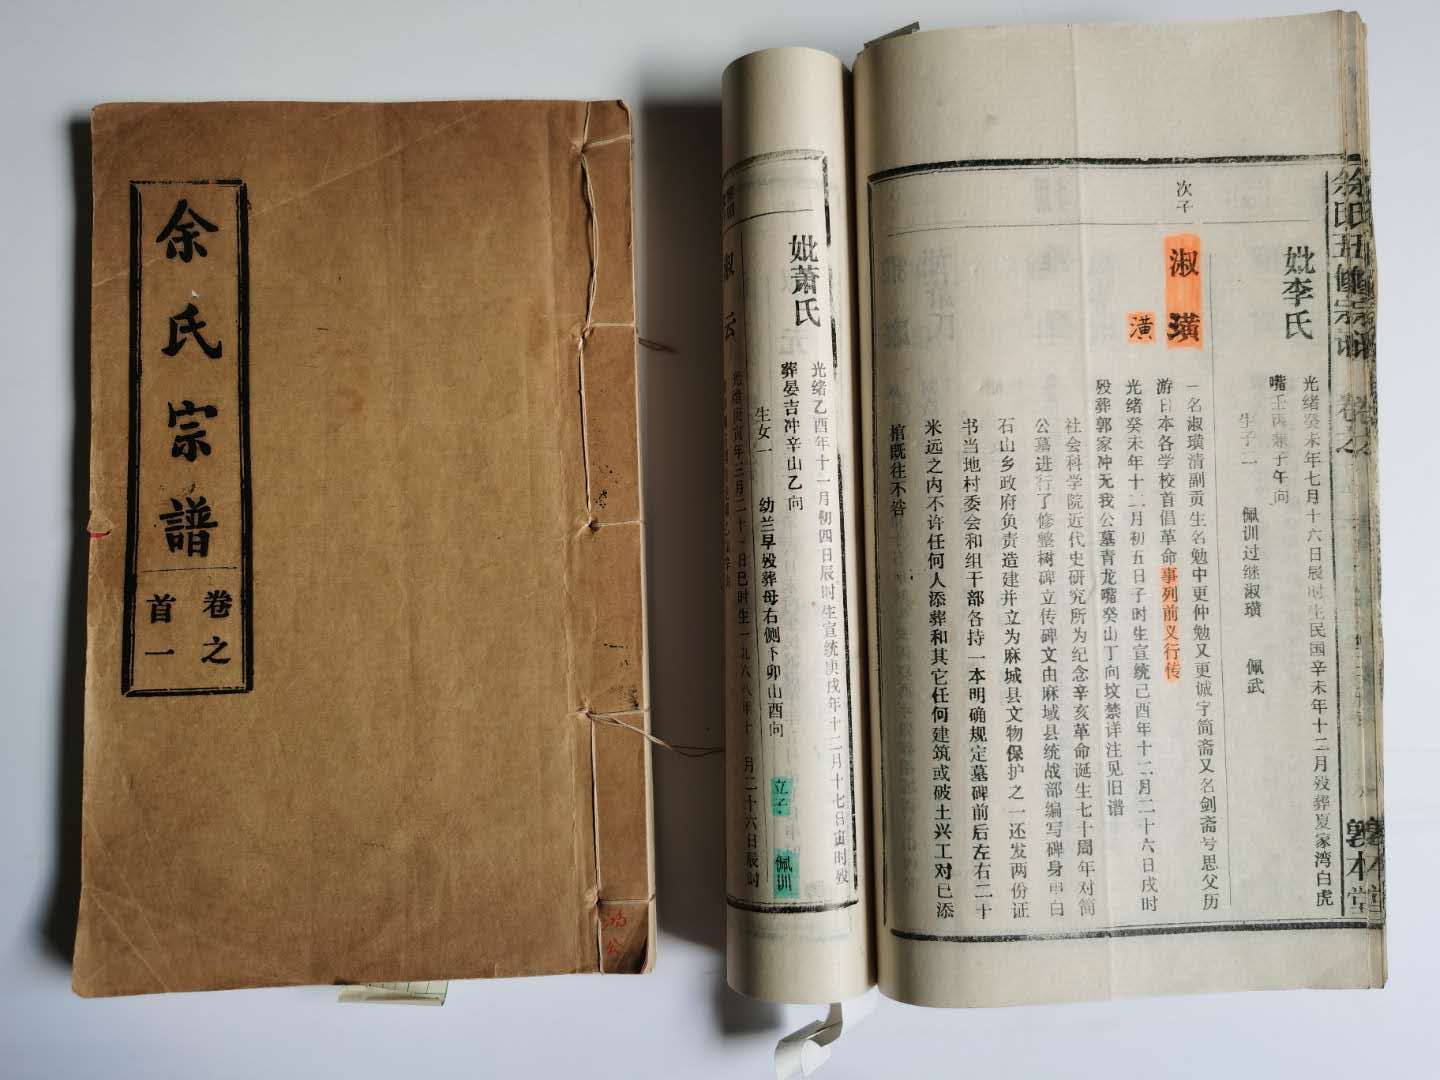 余氏宗譜
卷之
首一
鸿公
余氏五修宗谱
卷之
敦本堂
妣李氏
光绪癸未年七月十六日辰时生民国辛未年十二月殁葬夏家湾白虎
嘴壬丙兼子午向
生子二
佩训过继淑璜
佩武
次子
淑璜
潢
一名淑璜清副贡生名勉中更仲勉又更诚字简斋又名剑斋号思父历
游日本各学校首倡革命事列前义行传
光绪癸未年十二月初五日子时生宣统己酉年十二月二十六日戌时
殁葬郭家冲无我公墓青龙嘴癸山丁向坟禁详注见旧谱
社会科学院近代史研究所为纪念辛亥革命诞生七十周年对简
公墓进行了修整树碑立传碑文由麻城县统战部编写碑身由白
石山乡政府负责造建并立为麻城县文物保护之一还发两份证
书当地村委会和组干部各持一本明确规定墓碑前后左右二十
米远之内不许任何人添葬和其它任何建筑或破土兴工对已添
棺既往不咎
妣萧氏
光绪乙酉年十一月初四日辰时生宣统庚戌年十二月十七日寅时殁
葬晏吉冲辛山乙向
生女一
幼兰早殁葬母右侧下卯山酉向
立子
佩训
淑云
光绪庚寅年三月二十二日巳时生一九六八年十
月二十六日辰时